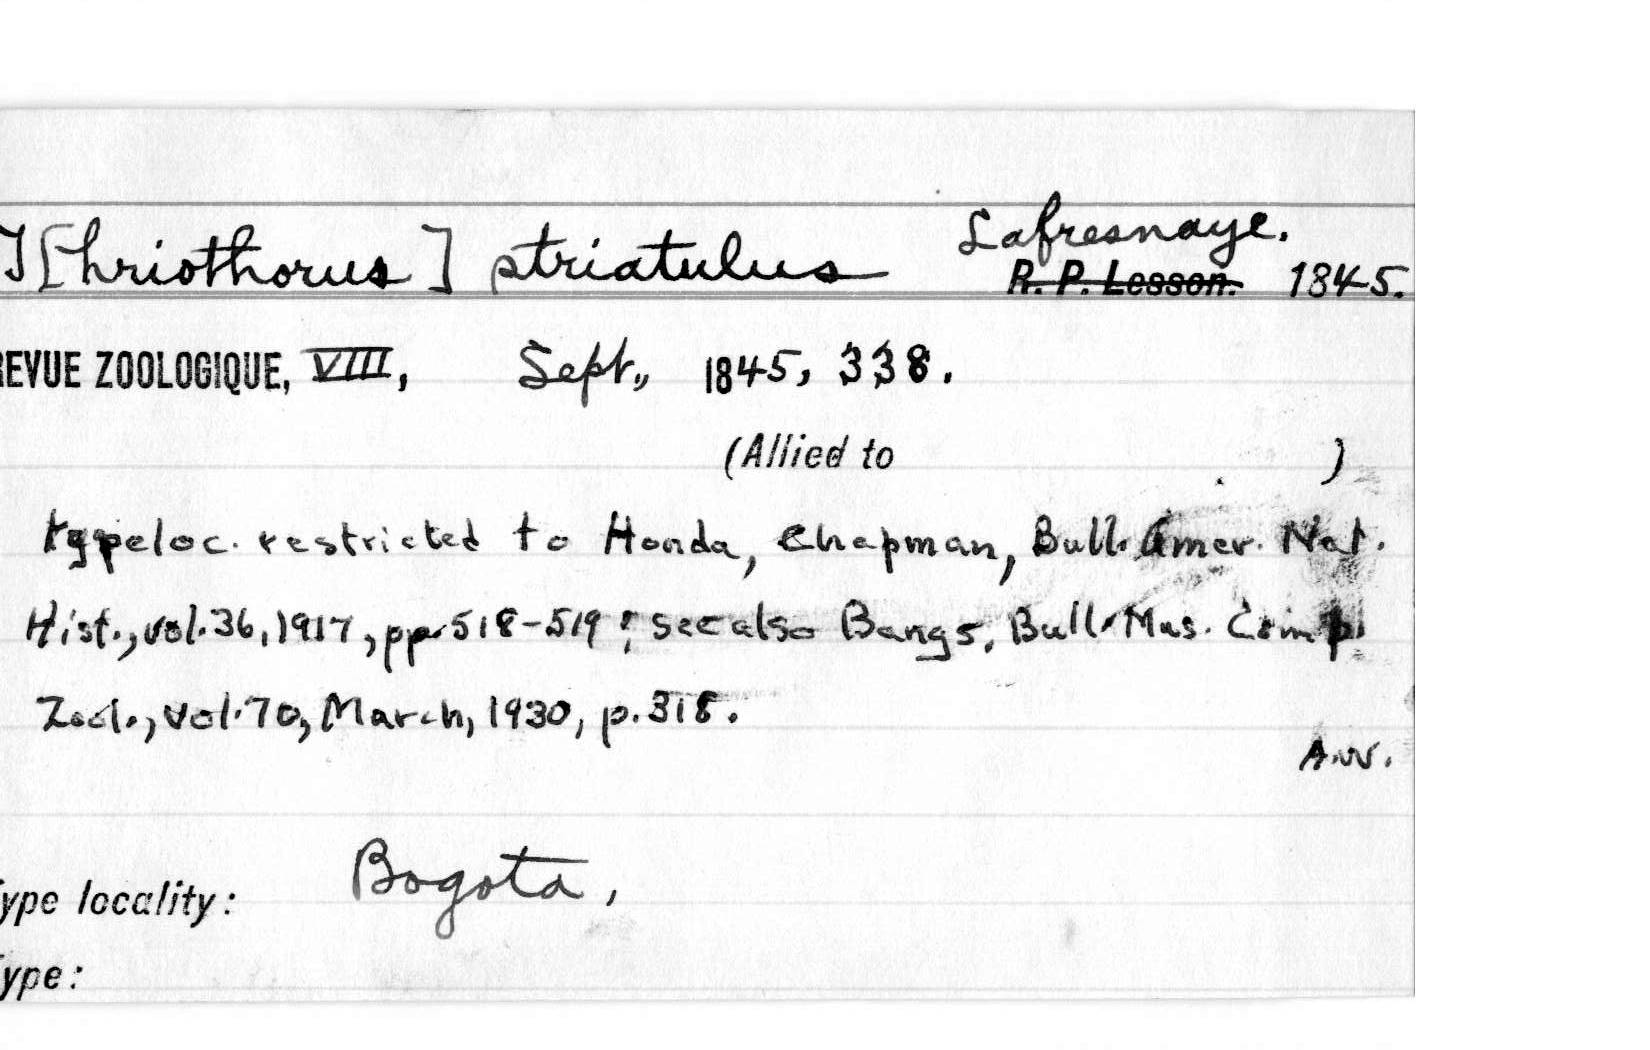 T[hriothorus] striatulus Lafresnaye.
R. P. Lesson. 1845.
REVUE ZOOLOGIQUE, VIII, Sept., 1845, 338.
(Allied to )
typeloc. restricted to Honda, Chapman, Bull. Amer. Nat.
Hist., vol. 36, 1917, pp. 518-519; see also Bangs, Bull. Mus. Comp.
Zool., vol. 70, March, 1930, p. 318.
A.W.
ype locality: Bogota,
ype: